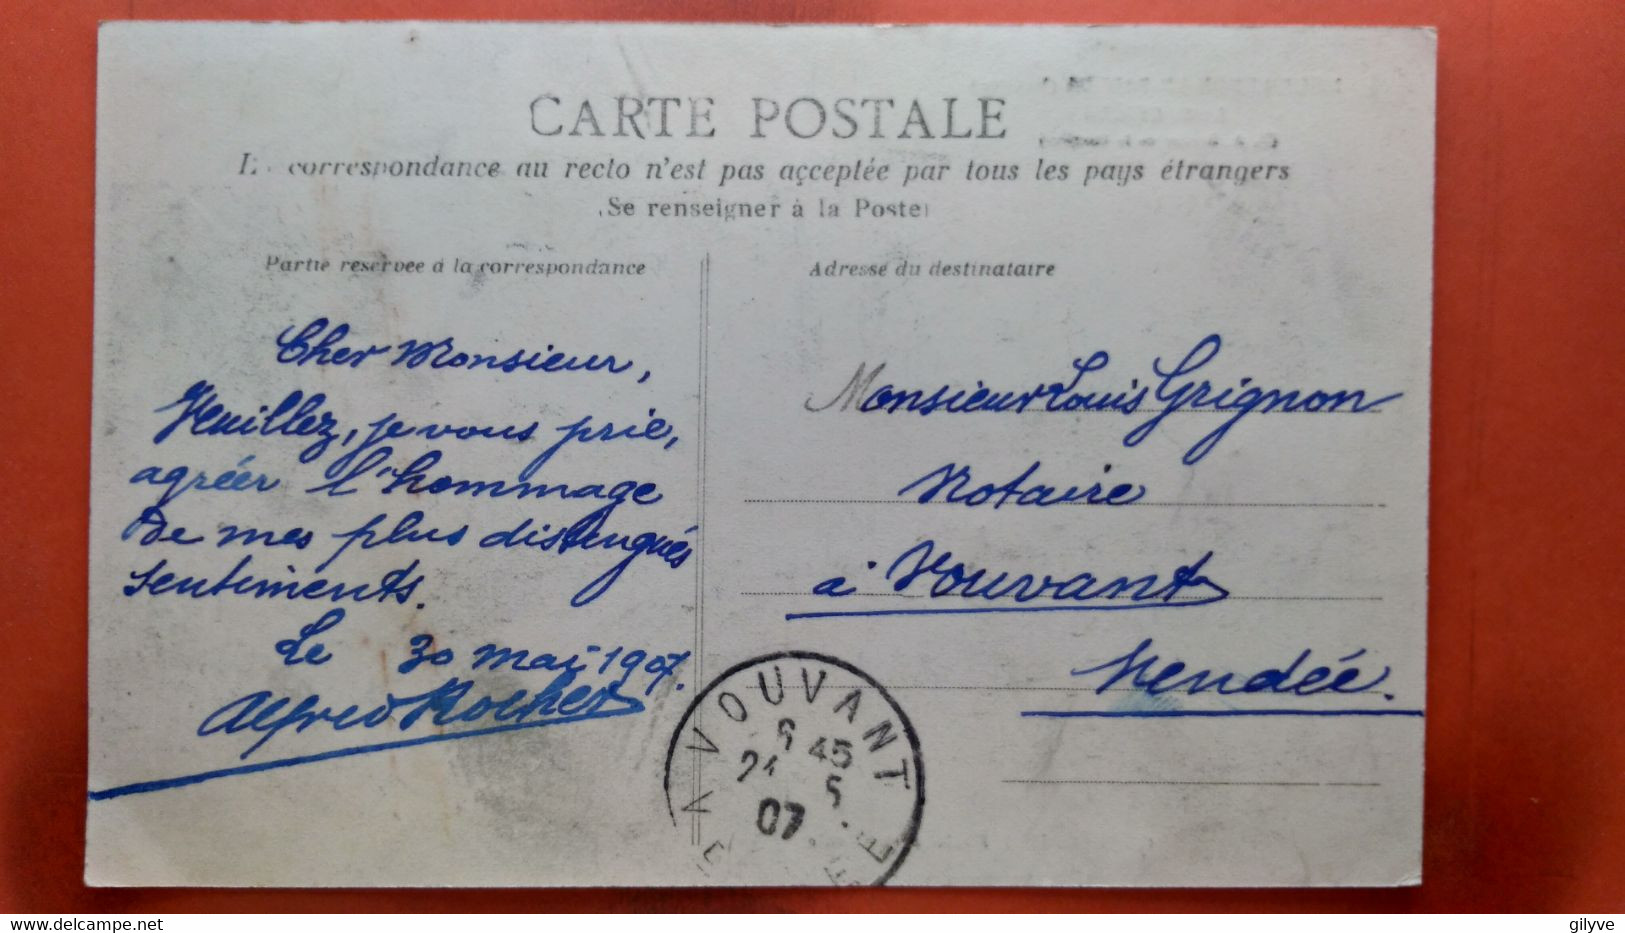 CARTE POSTALE
correspondance au recto n'est pas acceptée par tous les pays étrangers
(Se renseigner à la Poste)
Partie réservée à la correspondance
Adresse du destinataire
Cher Monsieur,
Veuillez, je vous prie,
agréer l'hommage
de mes plus distingués
sentiments.
Le 30 mai 1907.
Alfred Rocher
Monsieur Louis Grignon
Notaire
à Vouvant
Vendée.
VOUVANT
45
5
07
gilyve
delcampe.net